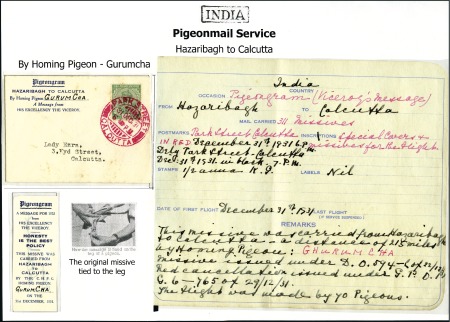 INDIA
Pigeonmail Service
Hazaribagh to Calcutta
By Homing Pigeon - Gurumcha
Pigeongram
HAZARIBAGH TO CALCUTTA
By Homing Pigeon GURUMCHA.
A Message from
HIS EXCELLENCY THE VICEROY.
PARK STREET
CALCUTTA
Lady Ezra,
3, Kyd Street,
Calcutta.
Pigeongram
A MESSAGE FOR YOU
FROM
HIS EXCELLENCY
THE VICEROY.
HONESTY
IS THE BEST
POLICY
THIS MISSIVE WAS
CARRIED FROM
HAZARIBAGH
TO
CALCUTTA
HOMING PIGEON
GURUMCHA.
ON THE
31st DECEMBER, 1931.
The original missive
tied to the leg
India
COUNTRY
OCCASION Pigeongram (Viceroy's Message)
FROM Hazaribagh TO Calcutta
MAIL CARRIED 311 Missives
POSTMARKS Park Street Calcutta INSCRIPTIONS Special Covers &
IN RED December 31st 1931 6 P.M. missives for the flight
Dely Park Street-Calcutta
Dec. 31st 1931. in black 7-P.M.
STAMPS 1/2 anna K.G. LABELS Nil
DATE OF FIRST FLIGHT December 31st 1931. LAST FLIGHT
(IF SERVICE SUSPENDED)
REMARKS
This missive was carried from Hazaribagh
to Calcutta - a distance of 215 miles
by Homing Pigeon: GHURUMCHA
Missive issued under D.O. 594-
Red cancellation issued under G.P.O.
G. 6-765 of 29/12/31.
The flight was made by 70 Pigeons.